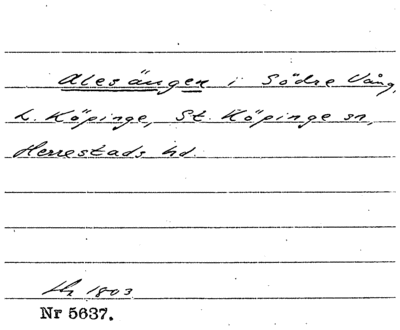 Alesängen i Södre Vång,
L. Köpinge, St. Köpinge sn,
Herrestads hd.
1803
Nr 5637.